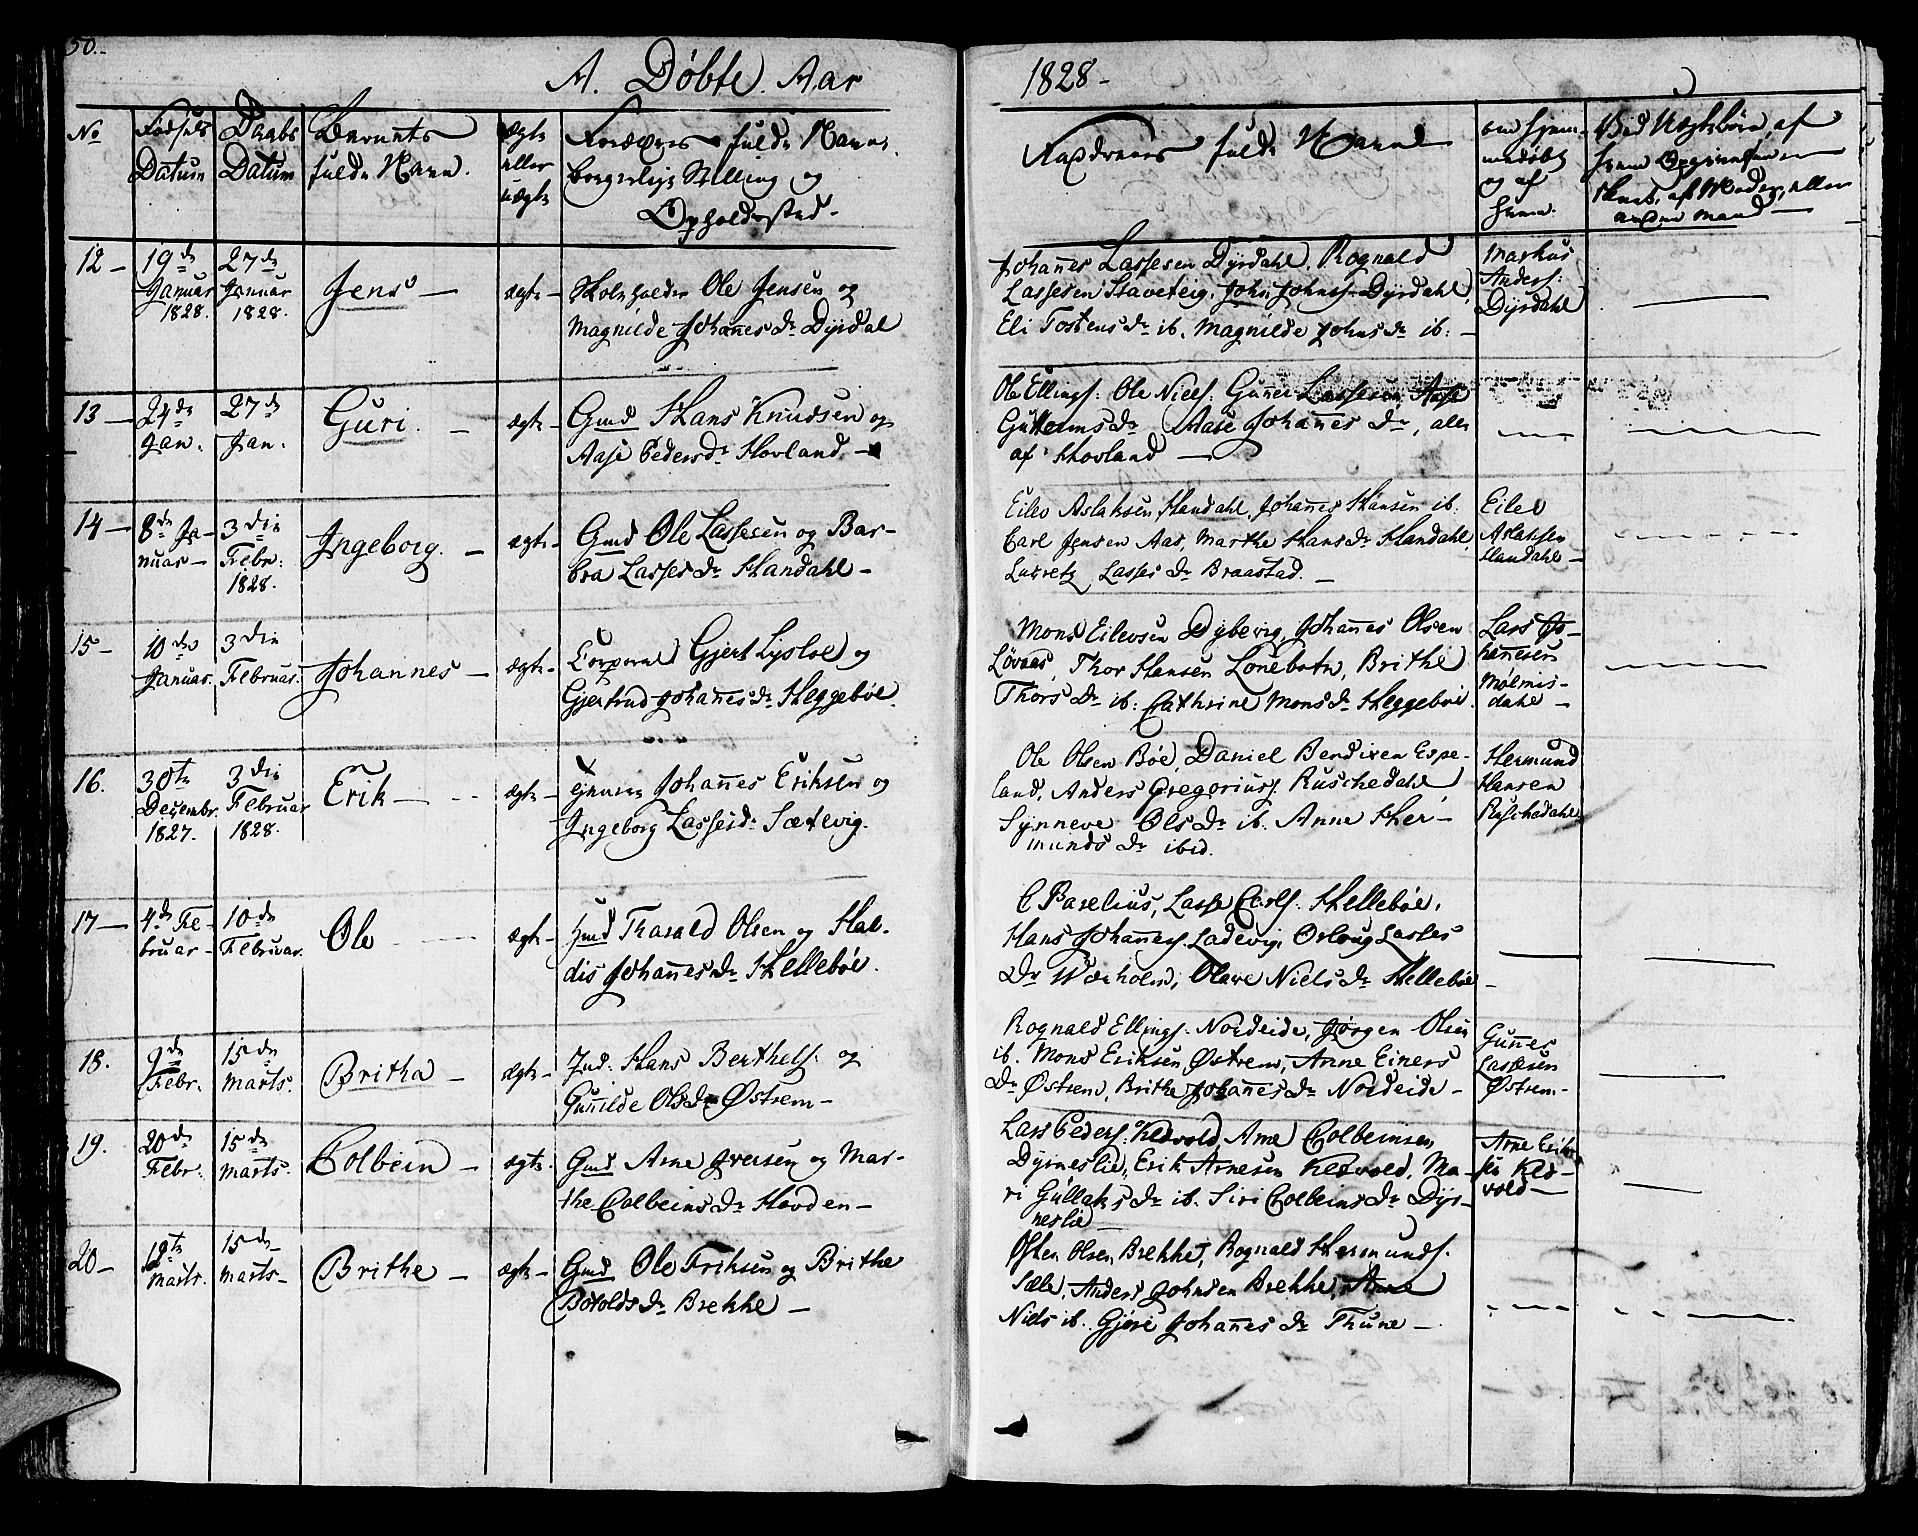 50.
A. Døbte. Aar 1828 -
No
Fødsels Datum
Daabs Datum
Barnets fulde Navn.
ægte eller uægte
Forældres fulde Navne.
borgerlige Stilling og
Opholdssted.
Faddernes fulde Navne
om hjemmedøbt og af hvem.
Ved Uægtebørn, af
hvem
andre mænd
12 -
19de Januar 1828.
27de Januar 1828.
Jens -
ægte -
Skoleholder Ole Jensen og
Magnilde Johannes Dr Dyrdal
Johannes Lassesen Dyrdahl, Rognald
Lassesen Staveteig, John Johnss. Dyrdahl,
Eli Tostens Dr ib. Magnilde Johns Dr ib: -
Markus
Anders:
Dyrdahl
13 -
24de Jan.
27de Jan.
Guri. -
ægte -
Gmd Hans Knudsen og
Aase Peders Dr Hovland -
Ole Ellings: Ole Niels: Gunner Lassesen Aase
Gutterms Dr Aase Johannes Dr, alle
af Hovland -
14 -
8de Januar -
3die Febr: 1828.
Ingeborg. -
ægte -
Gmd Ole Lassesen og Bar-
bra Lasses Dr Handahl -
Eilev Aslaksen Handahl, Johannes Hansen ib.
Carl Jensen Aas, Marthe Hans Dr Handahl,
Lucretz Lasses Dr Braastad. -
Eilev
Aslaksen
Handahl -
15 -
10de Januar.
3die Februar.
Johannes -
ægte -
Corporal Gjert Lysloe og
Gjertrud Johannes Dr Heggebøe.
Mons Eilevsen Dybevig, Johannes Olsen
Løvaas, Thor Hansen Lonebotn, Brithe
Thors Dr ib: Cathrine Mons Dr Heggebøe.
Lars Jo-
hannesen
Mølmis-
dahl -
16.
30te Decembr. 1827.
3die Februar 1828.
Erik -
ægte -
Johannes Eriksen og
Ingeborg Lasses Dr Sætevig.
Ole Olsen Bøe, Daniel Bendixen Espe-
land, Anders Gregoriuss. Ruschedahl
Synneve Ols Dr ib. Anne Her-
munds Dr ibid.
Hermund
Hansen
Ruschedahl
17 -
4de Februar -
10de Februar.
Ole -
ægte -
Hmd Trasald Olsen og Hal-
dis Johannes Dr Hellebøe.
C Baselius, Lasse Carls. Hellebøe,
Hans Johanness. Ladevig, Orloug Lasses
Dr Wærholm, Olave Niels Dr Hellebøe -
18.
9de Febr.
15de Marts.
Britha -
ægte -
Ind. Hans Berthels: og
Gunilde Ols Dr Østrem -
Rognald Ellings. Nordeide, Jørgen Olsen
ib. Mons Eriksen Østrem, Anne Einers
Dr Østrem, Brithe Johannes Dr Nordeide -
Gunner
Lassesen
Østrem -
19.
20de Febr:
15de Marts.
Colbein -
ægte.
Gmd Arne Iversen og Mar-
the Colbeins Dr Hovden -
Lars Peders: Kleivold, Arne Colbeinsen
Dyrneslie, Erik Arnesen Kleivold, Ma-
ri Gullaks Dr ib. Siri Colbeins Dr Dyr-
neslie
Arne Erik-
sen Klei-
vold -
20 -
12te Marts.
15de Marts -
Brithe -
ægte -
Gmd Ole Eriksen og Brithe
Botolds Dr Brekke -
Østen Olsen Brekke, Rognald Hermunds.
Sæle, Anders Johnsen Brekke, Anne
Niels ib. Gjøri Johannes Dr Thune -